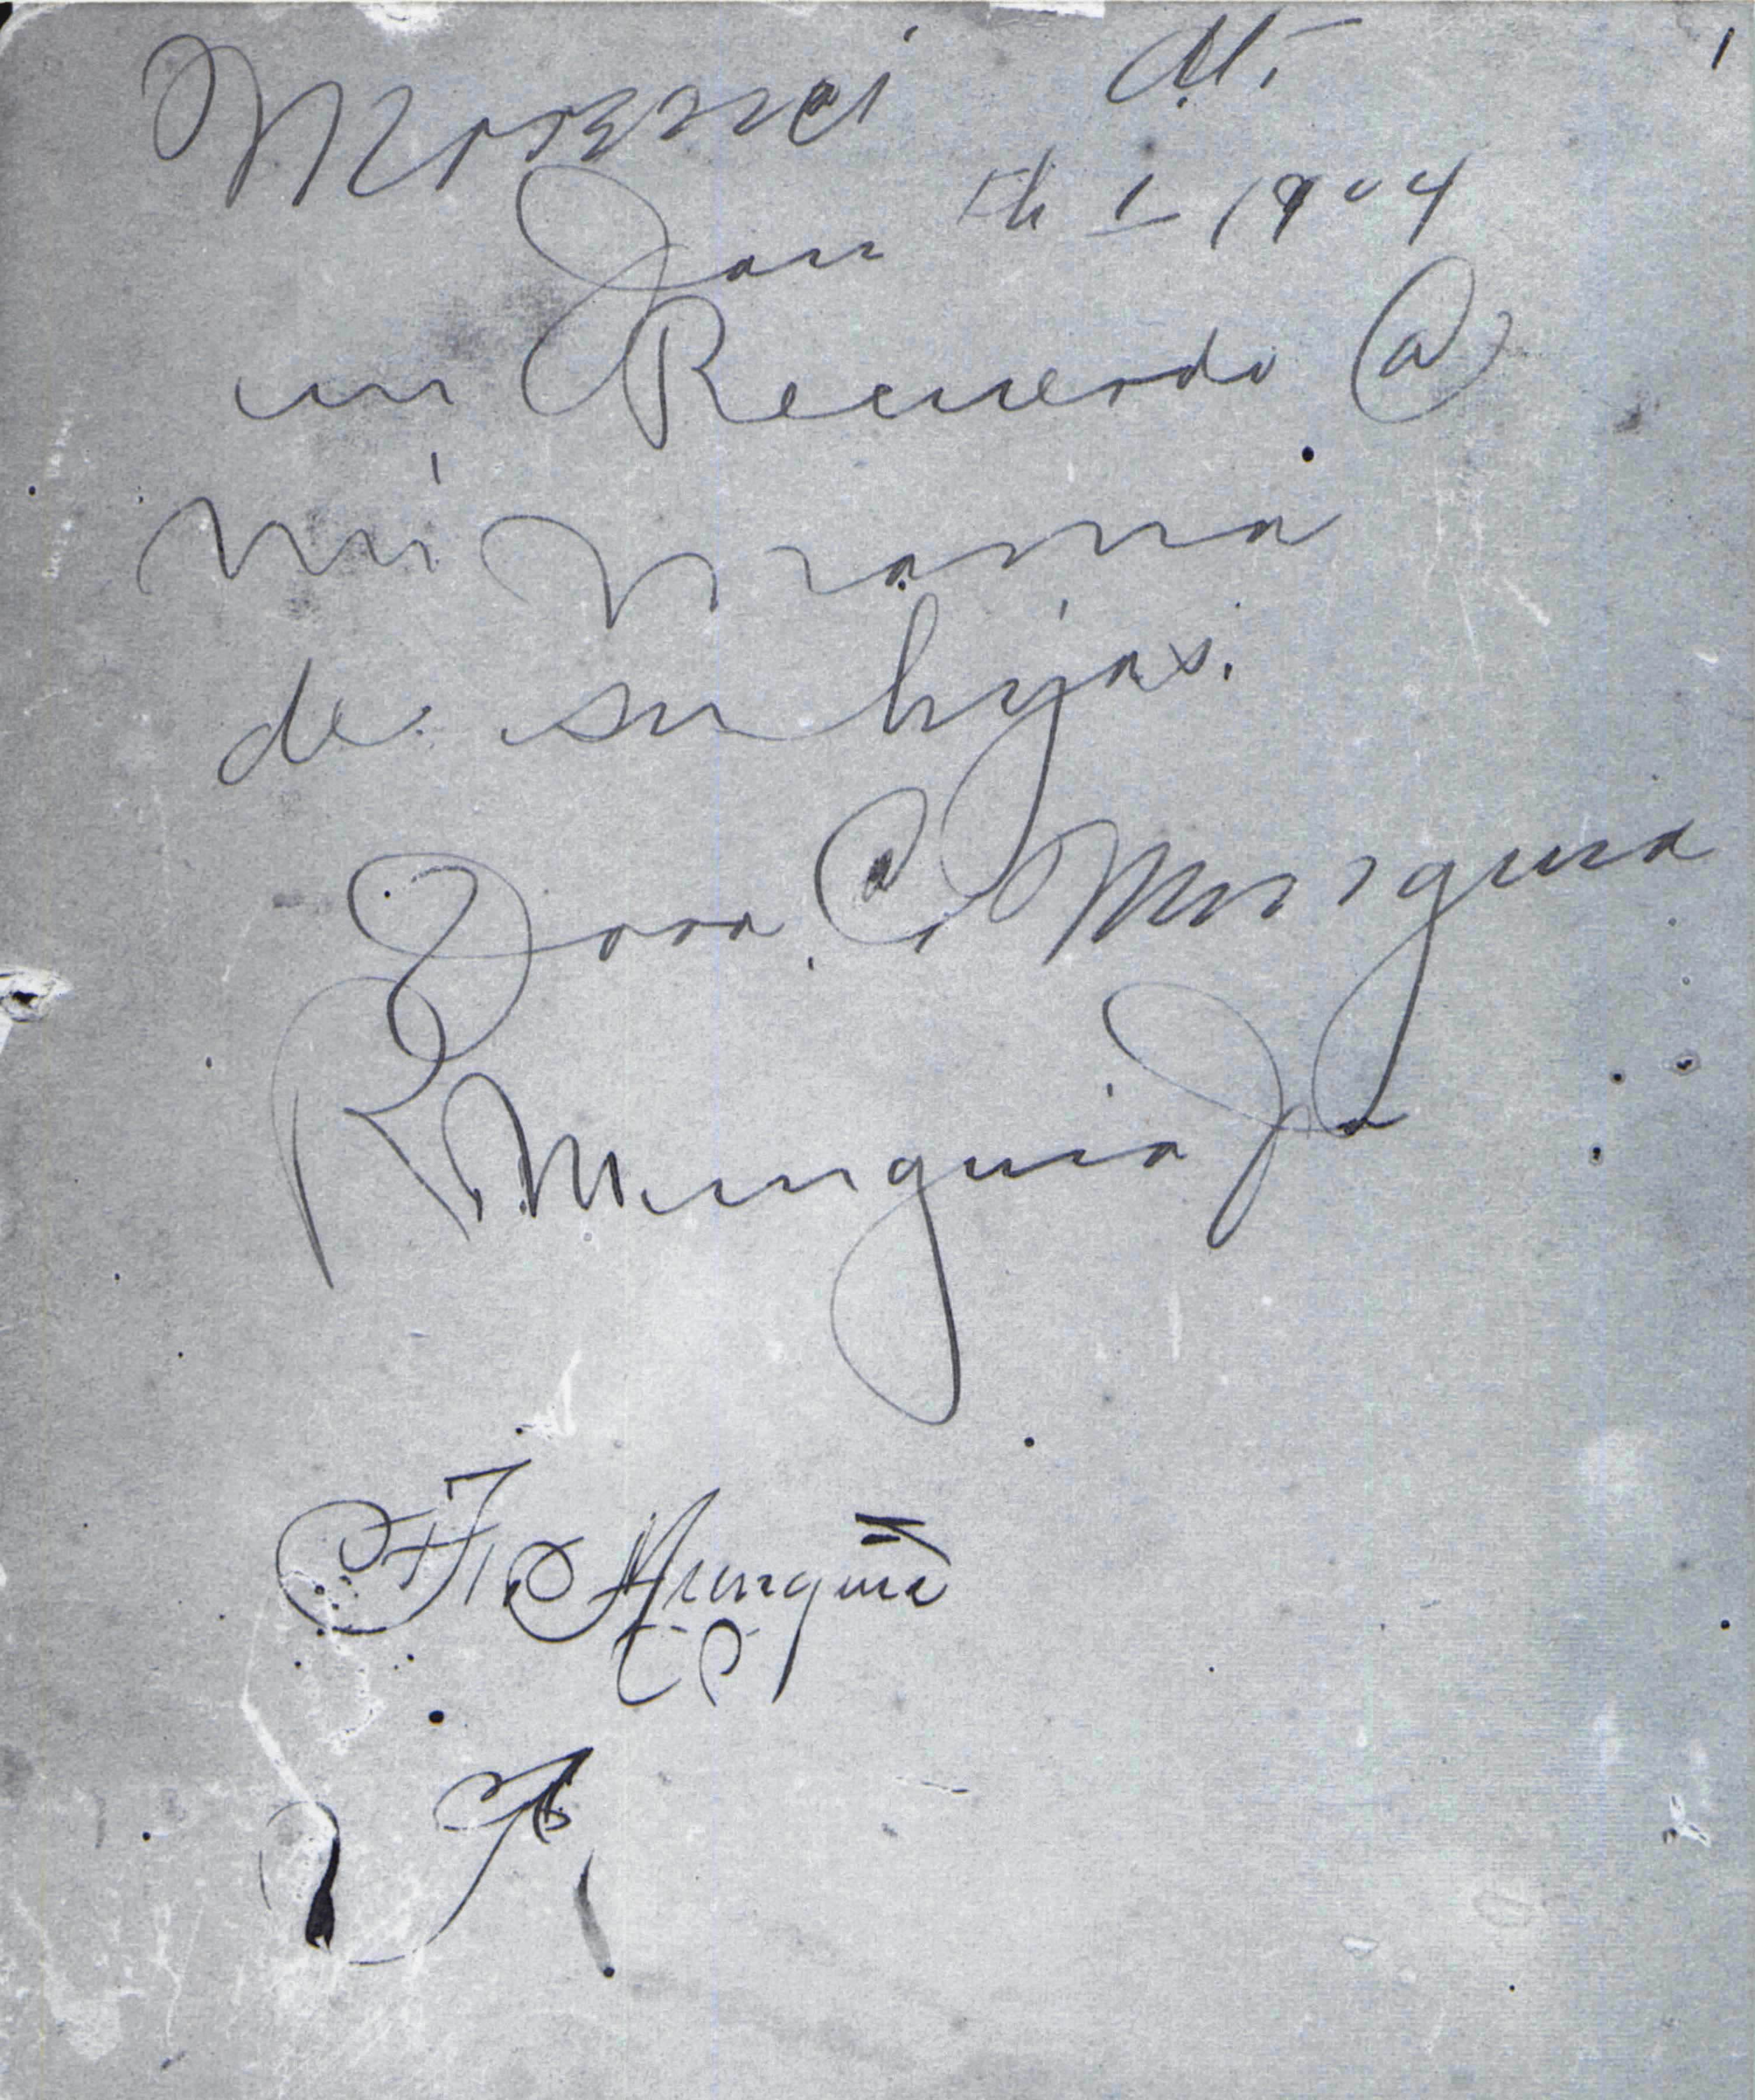 Morenci At.
Jan th 1 - 1904
un Recuerdo @
mi mama
de su hijas.
Dora C. Munguia
R. Munguia Jr
F. Munguia